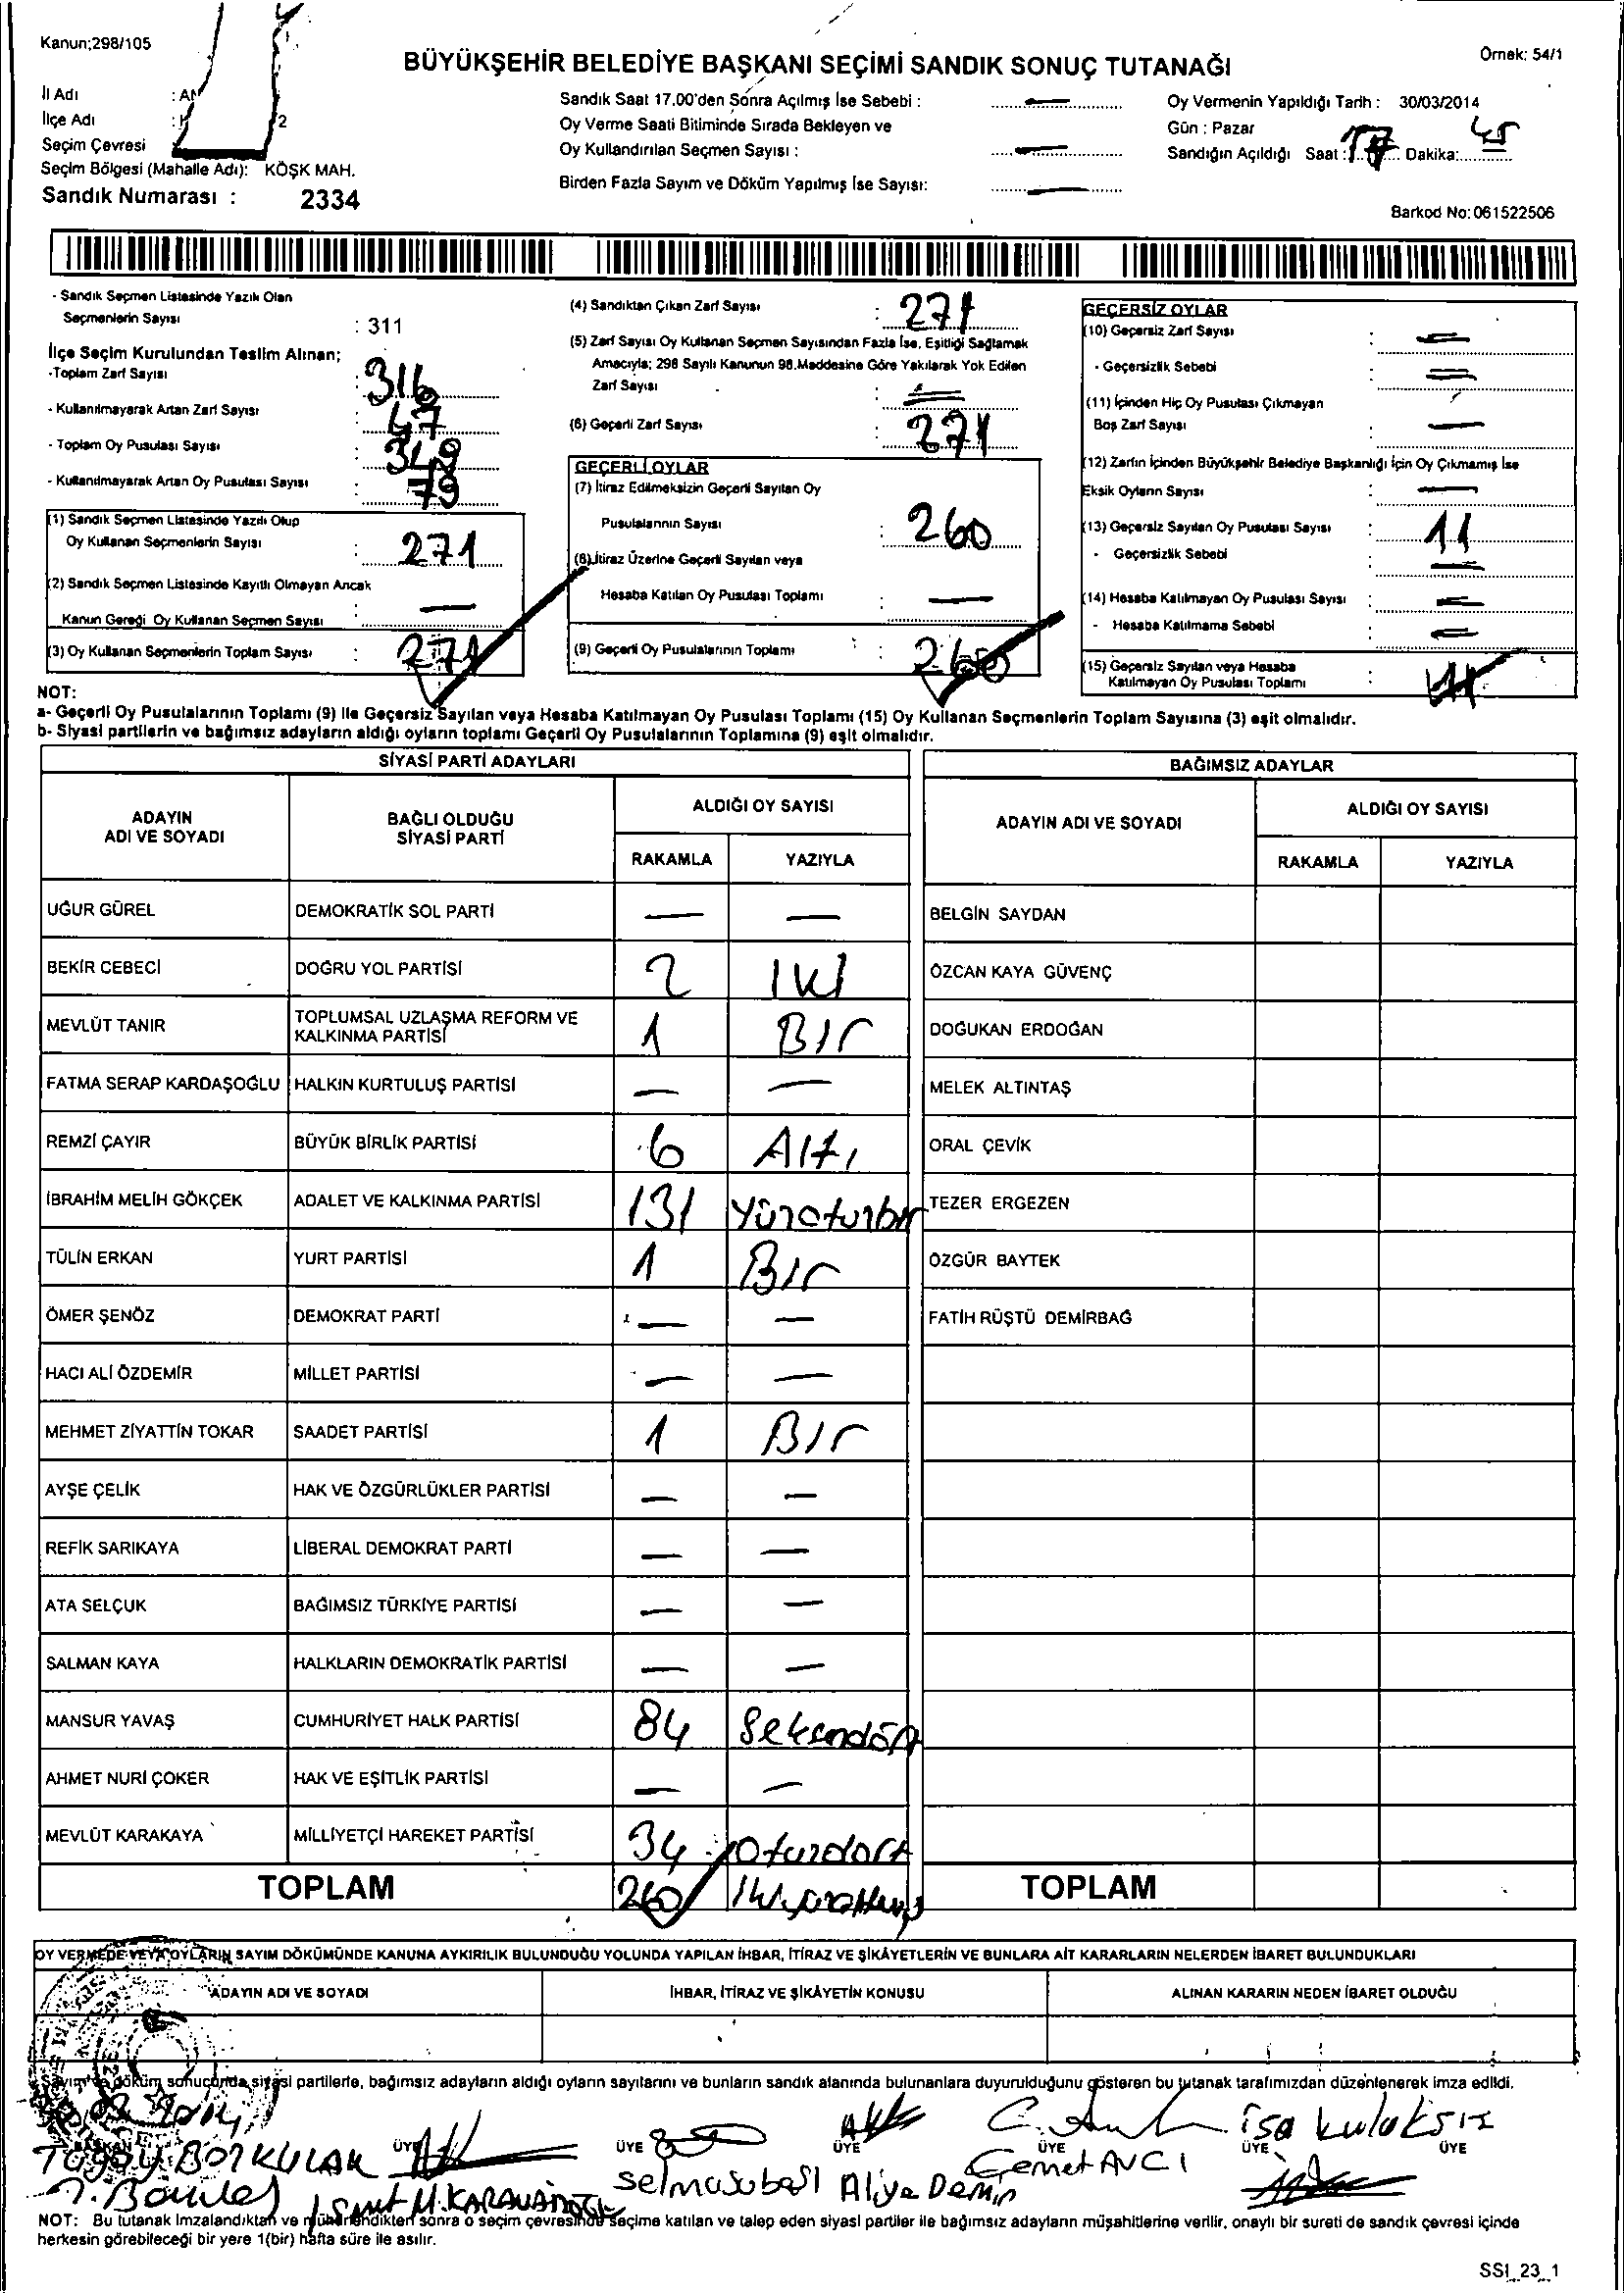 Kanun;298/105
BÜYÜKŞEHİR BELEDİYE BAŞKANI SEÇİMİ SANDIK SONUÇ TUTANAĞI
Örnek: 54/1
İl Adı
İlçe Adı
Seçim Çevresi
Seçim Bölgesi (Mahalle Adı): KÖŞK MAH.
Sandık Numarası : 2334
Sandık Saat 17.00'den Sonra Açılmış İse Sebebi : —
Oy Verme Saati Bitiminde Sırada Bekleyen ve
Oy Kullandırılan Seçmen Sayısı : —
Birden Fazla Sayım ve Döküm Yapılmış İse Sayısı: —
Oy Vermenin Yapıldığı Tarih : 30/03/2014
Gün : Pazar
Sandığın Açıldığı Saat : 17 Dakika: 45
Barkod No: 061522506
- Sandık Seçmen Listesinde Yazılı Olan
Seçmenlerin Sayısı : 311
İlçe Seçim Kurulundan Teslim Alınan;
-Toplam Zarf Sayısı : 316
- Kullanılmayarak Artan Zarf Sayısı : 47
- Toplam Oy Pusulası Sayısı : 348
- Kullanılmayarak Artan Oy Pusulası Sayısı : 79
(1) Sandık Seçmen Listesinde Yazılı Olup
Oy Kullanan Seçmenlerin Sayısı : 271
(2) Sandık Seçmen Listesinde Kayıtlı Olmayan Ancak
Kanun Gereği Oy Kullanan Seçmen Sayısı : —
(3) Oy Kullanan Seçmenlerin Toplam Sayısı : 271
(4) Sandıktan Çıkan Zarf Sayısı : 271
(5) Zarf Sayısı Oy Kullanan Seçmen Sayısından Fazla İse, Eşitliği Sağlamak
Amacıyla; 298 Sayılı Kanunun 98.Maddesine Göre Yakılarak Yok Edilen
Zarf Sayısı : —
(6) Geçerli Zarf Sayısı : 271
GEÇERLİ OYLAR
(7) İtiraz Edilmeksizin Geçerli Sayılan Oy
Pusulalarının Sayısı : 260
(8) İtiraz Üzerine Geçerli Sayılan veya
Hesaba Katılan Oy Pusulası Toplamı : —
(9) Geçerli Oy Pusulalarının Toplamı : 260
GEÇERSİZ OYLAR
(10) Geçersiz Zarf Sayısı : —
- Geçersizlik Sebebi : —
(11) İçinden Hiç Oy Pusulası Çıkmayan
Boş Zarf Sayısı : —
(12) Zarfın İçinden Büyükşehir Belediye Başkanlığı İçin Oy Çıkmamış İse
Eksik Oyların Sayısı : —
(13) Geçersiz Sayılan Oy Pusulası Sayısı : 11
- Geçersizlik Sebebi : —
(14) Hesaba Katılmayan Oy Pusulası Sayısı : —
- Hesaba Katılmama Sebebi : —
(15) Geçersiz Sayılan veya Hesaba
Katılmayan Oy Pusulası Toplamı : 11
NOT:
a- Geçerli Oy Pusulalarının Toplamı (9) ile Geçersiz Sayılan veya Hesaba Katılmayan Oy Pusulası Toplamı (15) Oy Kullanan Seçmenlerin Toplam Sayısına (3) eşit olmalıdır.
b- Siyasi partilerin ve bağımsız adayların aldığı oyların toplamı Geçerli Oy Pusulalarının Toplamına (9) eşit olmalıdır.
SİYASİ PARTİ ADAYLARI
ADAYIN ADI VE SOYADI
BAĞLI OLDUĞU SİYASİ PARTİ
ALDIĞI OY SAYISI
RAKAMLA YAZIYLA
UĞUR GÜREL DEMOKRATİK SOL PARTİ — —
BEKİR CEBECİ DOĞRU YOL PARTİSİ 2 İki
MEVLÜT TANIR TOPLUMSAL UZLAŞMA REFORM VE KALKINMA PARTİSİ 1 Bir
FATMA SERAP KARDAŞOĞLU HALKIN KURTULUŞ PARTİSİ — —
REMZİ ÇAYIR BÜYÜK BİRLİK PARTİSİ 6 Altı
İBRAHİM MELİH GÖKÇEK ADALET VE KALKINMA PARTİSİ 131 Yüzoturbir
TÜLİN ERKAN YURT PARTİSİ 1 Bir
ÖMER ŞENÖZ DEMOKRAT PARTİ — —
HACI ALİ ÖZDEMİR MİLLET PARTİSİ — —
MEHMET ZİYATTİN TOKAR SAADET PARTİSİ 1 Bir
AYŞE ÇELİK HAK VE ÖZGÜRLÜKLER PARTİSİ — —
REFİK SARIKAYA LİBERAL DEMOKRAT PARTİ — —
ATA SELÇUK BAĞIMSIZ TÜRKİYE PARTİSİ — —
SALMAN KAYA HALKLARIN DEMOKRATİK PARTİSİ — —
MANSUR YAVAŞ CUMHURİYET HALK PARTİSİ 84 Seksendört
AHMET NURİ ÇOKER HAK VE EŞİTLİK PARTİSİ — —
MEVLÜT KARAKAYA MİLLİYETÇİ HAREKET PARTİSİ 34 Oturdört
TOPLAM 260 İkiyüzaltmış
BAĞIMSIZ ADAYLAR
ADAYIN ADI VE SOYADI
ALDIĞI OY SAYISI
RAKAMLA YAZIYLA
BELGİN SAYDAN
ÖZCAN KAYA GÜVENÇ
DOĞUKAN ERDOĞAN
MELEK ALTINTAŞ
ORAL ÇEVİK
TEZER ERGEZEN
ÖZGÜR BAYTEK
FATİH RÜŞTÜ DEMİRBAĞ
TOPLAM
OY VERMEDE VEYA OYLARIN SAYIM DÖKÜMÜNDE KANUNA AYKIRILIK BULUNDUĞU YOLUNDA YAPILAN İHBAR, İTİRAZ VE ŞİKÂYETLERİN VE BUNLARA AİT KARARLARIN NELERDEN İBARET BULUNDUKLARI
ADAYIN ADI VE SOYADI
İHBAR, İTİRAZ VE ŞİKÂYETİN KONUSU
ALINAN KARARIN NEDEN İBARET OLDUĞU
Sayım ve döküm sonucunda siyasi partilerle, bağımsız adayların aldığı oyların sayılarını ve bunların sandık alanında bulunanlara duyurulduğunu gösteren bu tutanak tarafımızdan düzenlenerek imza edildi.
2014
BAŞKAN ÜYE ÜYE ÜYE ÜYE ÜYE ÜYE
isa kulaksız
Selma Subaşı
Aliye Demir
Cemet AVCI
NOT: Bu tutanak İmzalandıktan ve mühürlendikten sonra o seçim çevresinde seçime katılan ve talep eden siyasi partiler ile bağımsız adayların müşahitlerine verilir, onaylı bir sureti de sandık çevresi içinde
herkesin görebileceği bir yere 1(bir) hafta süre ile asılır.
SSI_23_1